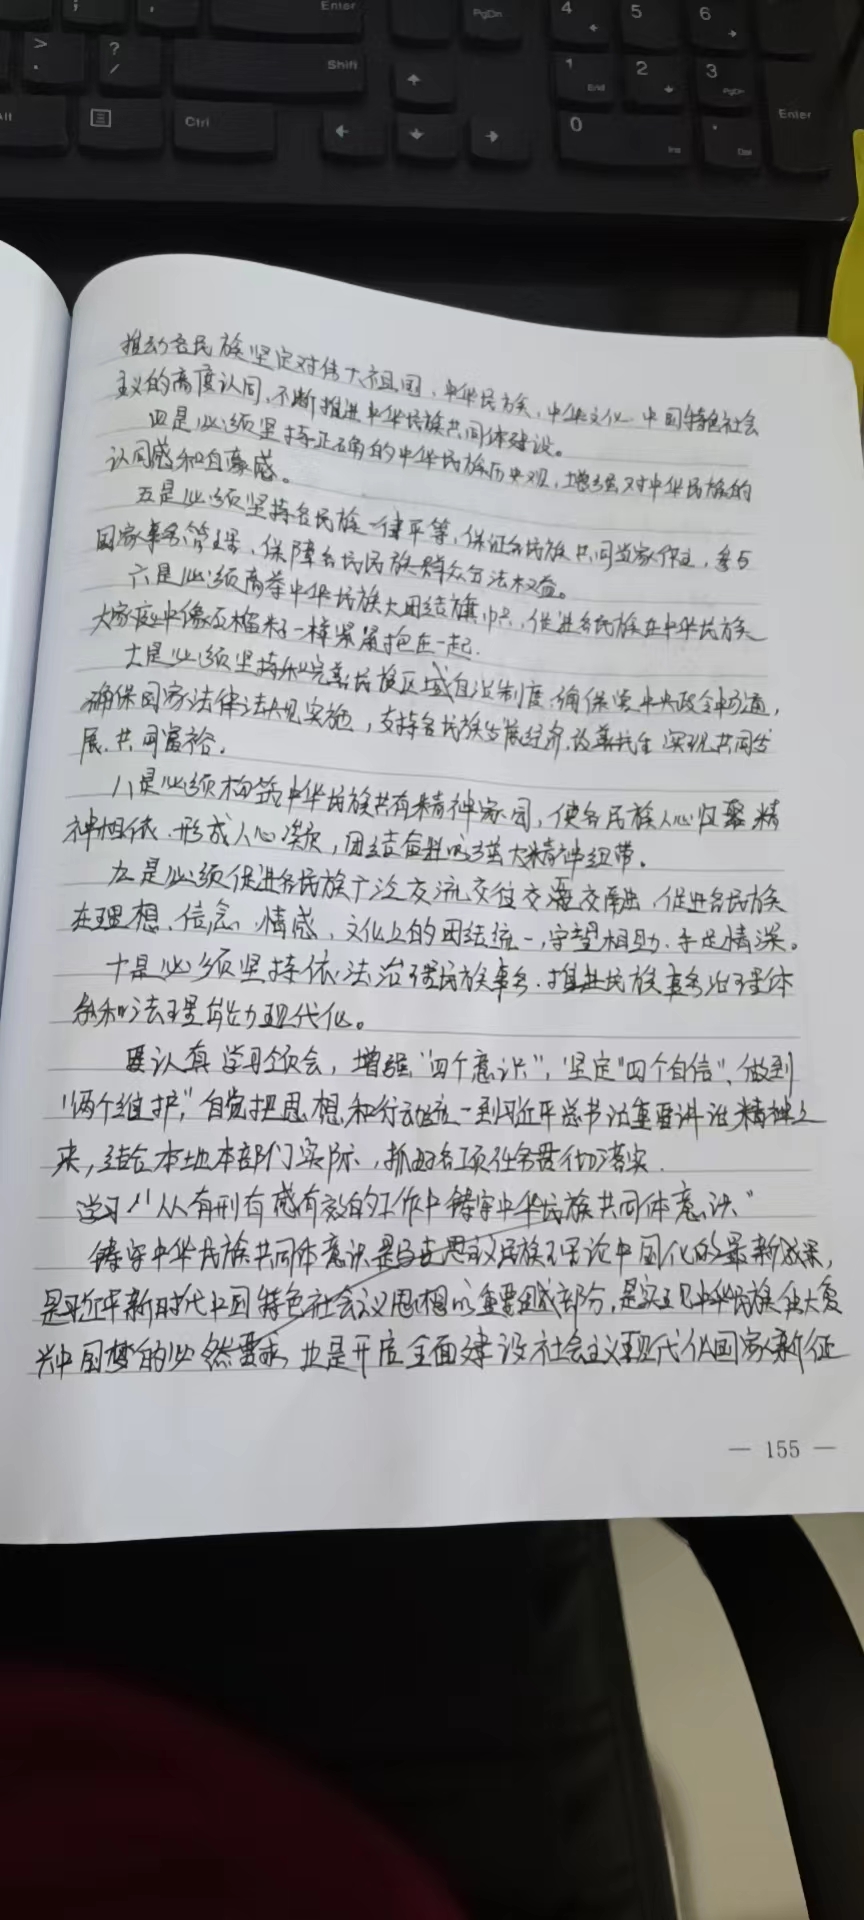 ; '
Enter
PgDn
4
5
6
>
.
?
/
Shift
1
End
2
3
PgDn
Enter
Ctrl
0
Ins
.
Del
推动各民族坚定对伟大祖国、中华民族、中华文化、中国特色社会
主义的高度认同,不断推进中华民族共同体建设。
四是必须坚持正确的中华民族历史观,增强对中华民族的
认同感和自豪感。
五是必须坚持各民族一律平等,保证各民族共同当家作主,参与
国家事务管理,保障各民族群众合法权益。
六是必须高举中华民族大团结旗帜,促进各民族在中华民族
大家庭中像石榴籽一样紧紧抱在一起.
七是必须坚持和完善民族区域自治制度,确保党中央政令畅通,
确保国家法律法规实施,支持各民族发展经济、改善民生,实现共同发
展、共同富裕。
八是必须构筑中华民族共有精神家园,使各民族人心归聚、精
神相依、形成人心凝聚,团结奋进的强大精神纽带。
九是必须促进各民族广泛交流交往交融,促进各民族
在理想、信念、情感、文化上的团结统一,守望相助、手足情深。
十是必须坚持依法治理民族事务,推进民族事务治理体
系和法理能力现代化。
要认真学习领会,增强"四个意识",坚定"四个自信",做到
"两个维护",自觉把思想和行动统一到习近平总书记重要讲话精神上
来,结合本地本部门实际,抓好各项任务贯彻落实.
学习"从有形有感有效的工作中铸牢中华民族共同体意识"
铸牢中华民族共同体意识是马克思主义民族理论中国化的最新成果,
是习近平新时代中国特色社会主义思想的重要组成部分,是实现中华民族伟大复
兴中国梦的必然要求,也是开启全面建设社会主义现代化国家新征
— 155 —